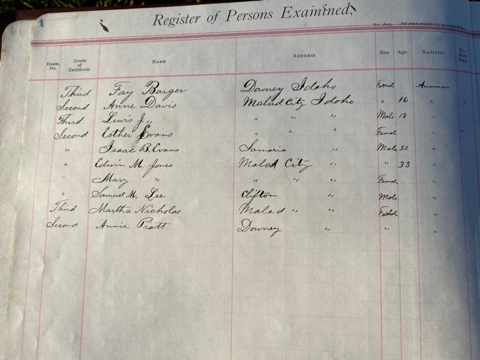 1
Register of Persons Examined.
Exam. No. Grade of Certificate Name Address Sex Age Nativity
Third Fay Barger Downey Idaho Femal American
Second Anne Davis Malad City Idaho " 16 "
Third Lewis J. " " " " Male 18 "
Second Esther Evans " " " Femal "
" Isaac B. Evans Samaria " Male 32 "
" Edwin M. Jones Malad City " " 33 "
" Mary " " " " Femal "
" Samuel M. Lee Clifton " Male "
Third Martha Nicholas Malad " " "
Second Annie Pratt Downey " " "